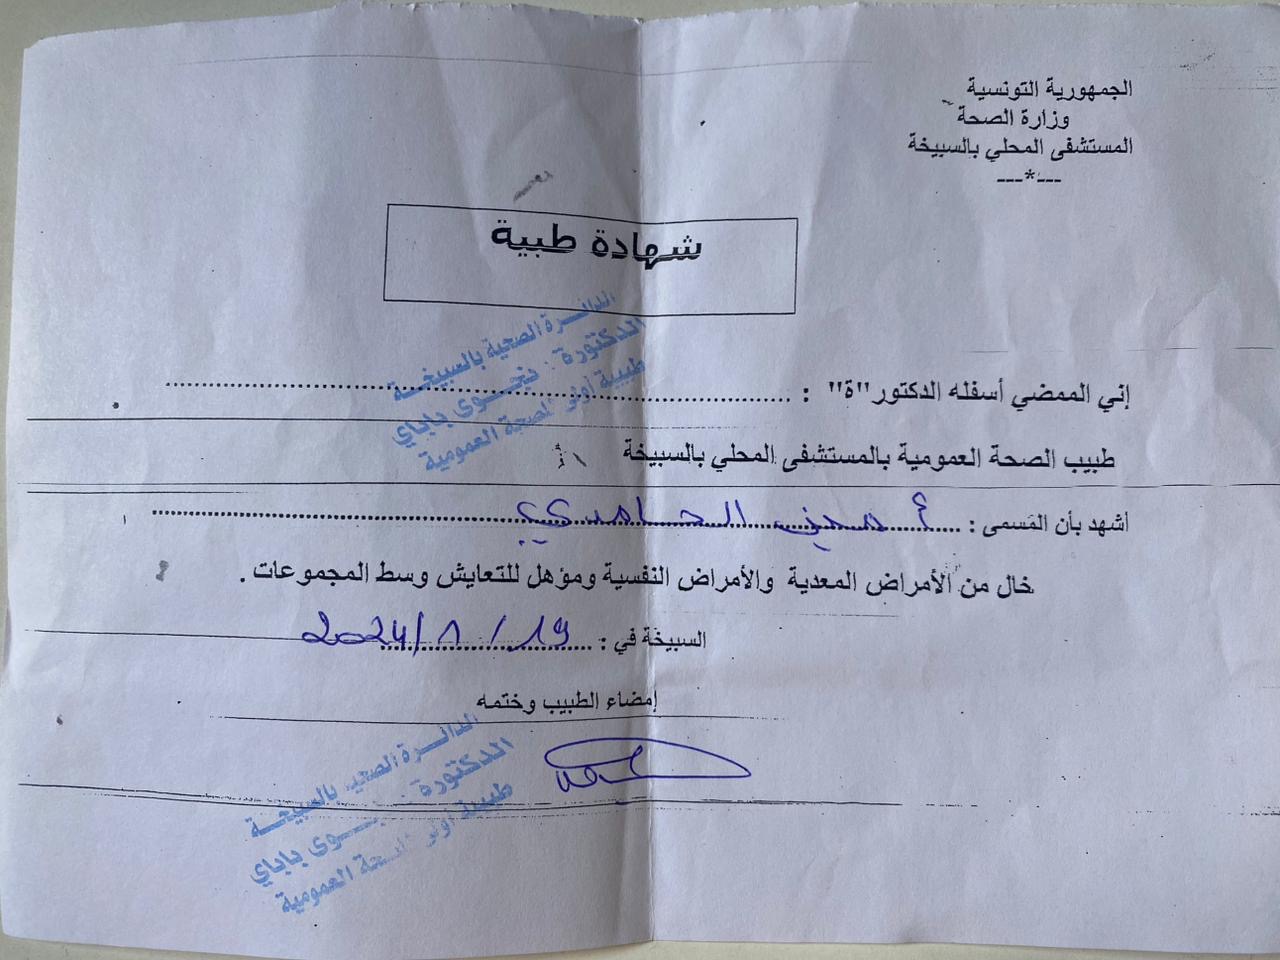 الجمهورية التونسية
وزارة الصحة
المستشفى المحلي بالسبيخة
---*---
شهادة طبية
الدائرة الصحية بالسبيخة
الدكتورة : نجوى باباي
طبيبة أولى للصحة العمومية
إني الممضي أسفله الدكتور"ة" :
طبيب الصحة العمومية بالمستشفى المحلي بالسبيخة
اشهد بأن المسمى : أ الحامدي
خال من الأمراض المعدية والأمراض النفسية ومؤهل للتعايش وسط المجموعات .
السبيخة في : 19 / 1 / 2024
إمضاء الطبيب وختمه
الدائرة الصحية بالسبيخة
الدكتورة : نجوى باباي
طبيبة أولى للصحة العمومية